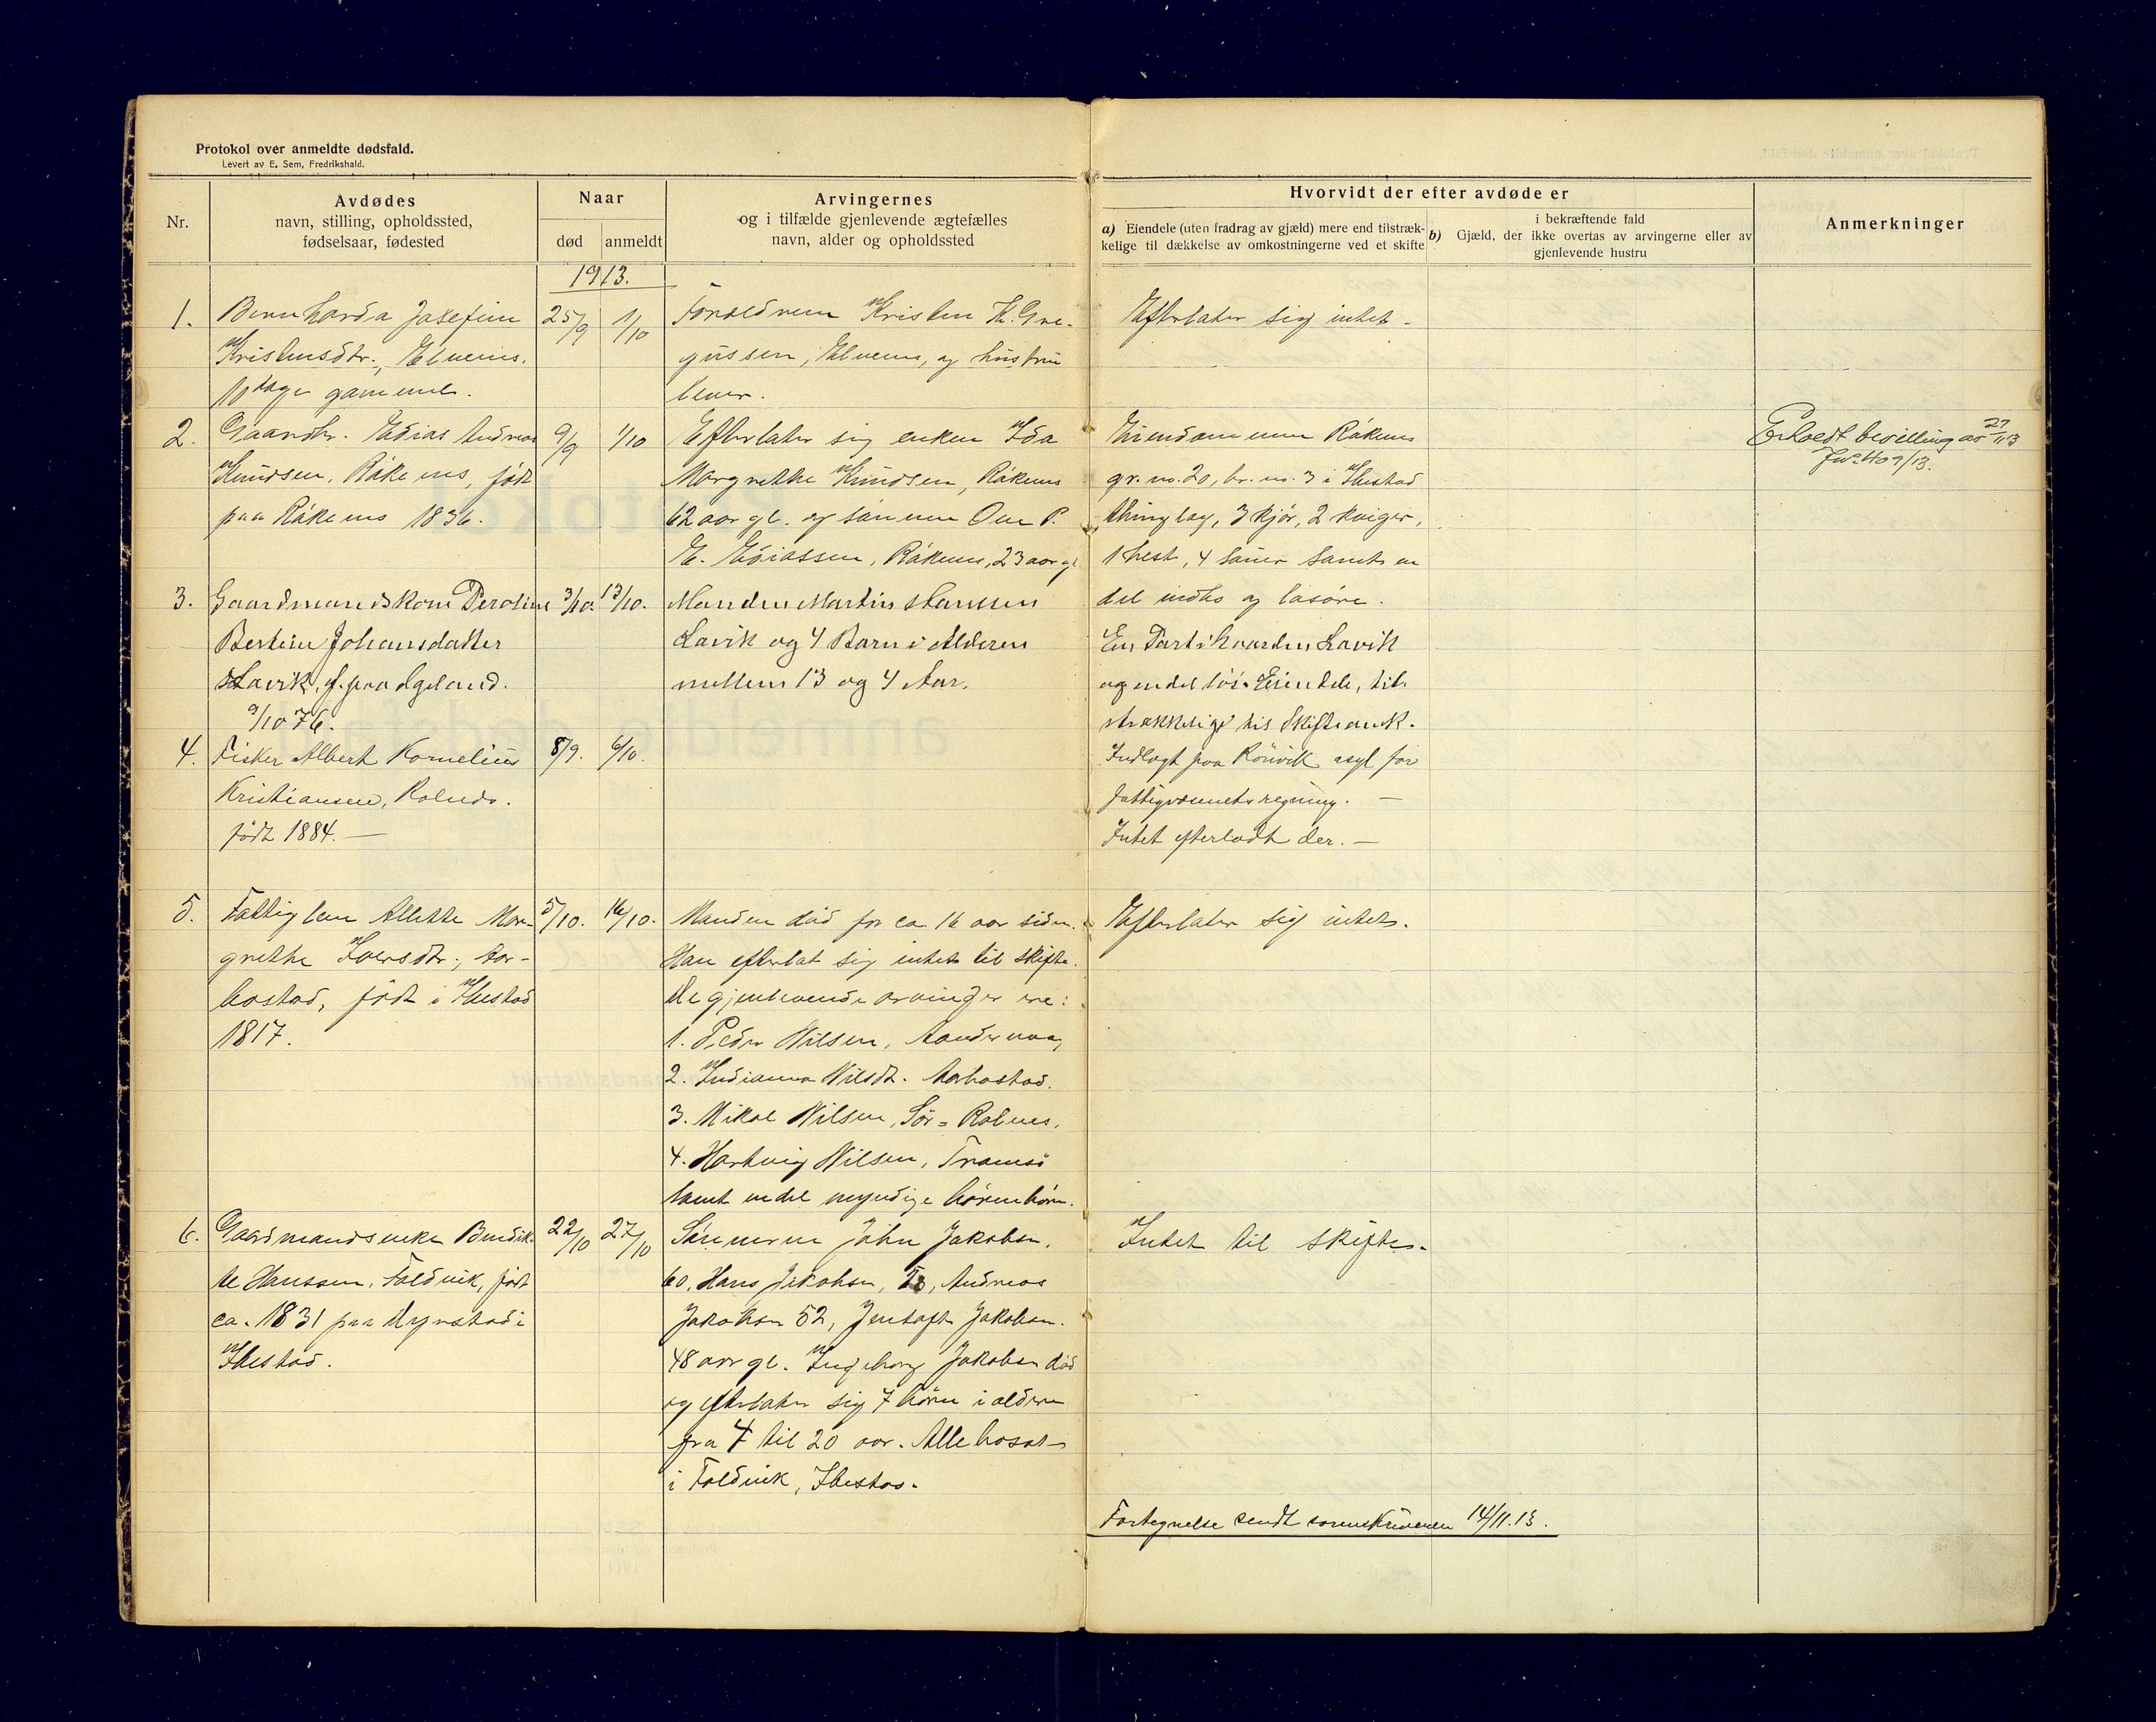 Protokol over anmeldte dødsfald.
Levert av E. Sem, Fredrikshald.
Nr.
Avdødes
navn, stilling, opholdssted,
fødselsaar, fødested
Naar
død
anmeldt
Arvingernes
og i tilfælde gjenlevende ægtefælles
navn, alder og opholdssted
Hvorvidt der efter avdøde er
a) Eiendele (uten fradrag av gjæld) mere end tilstræk-
kelige til dækkelse av omkostningerne ved et skifte
i bekræftende fald
b) Gjæld, der ikke overtas av arvingerne eller av
gjenlevende hustru
Anmerkninger
1913.
1.
Bernharda Josefine
Kristensdtr., Elvenes.
10 dage gammel.
25/9
1/10
Forældrene Kristen K. Gre-
gussen, Elvenes, og hustru
lever.
Efterlater sig intet.
2.
Gaardbr. Edias Andreas
Knudsen, Råkenes, født
paa Råkenes 1836.
9/9
1/10
Efterlater sig enken Ida
Margrethe Knudsen, Råkenes
62 aar gl. og sønnen Ove P.
E. Ediassen, Råkenes, 23 aar gl.
Eiendommen Råkenes
gr. no. 20, br. no. 3 i Ibestad
thinglag, 3 kjør, 2 kviger,
1 hest, 4 sauer samt en
del indbo og løsøre.
Erholdt bevilling av 27/11 13
Jno 409/13.
3.
Gaardmandskone Peroline
Bertine Johansdatter
Lavik, f. paa Ageland.
9/10 76.
3/10.
13/10.
Manden Martin Hanssen
Lavik og 4 Barn i Alderen
mellem 13 og 4 Aar.
En Part i Gaarden Lavik
og en del løs. Eiendele, til-
strækkelige til Skifteomk.
4.
Fisker Albert Kornelius
Kristiansen, Rolnes.
født 1884. —
8/9.
6/10.
Indlagt paa Rønvik asyl for
fattigvæsenets regning. —
Intet efterladt der. —
5.
Fattiglem Allette Mar-
grethe Iversdtr., Aar-
bostad, født i Ibestad
1817.
5/10.
16/10.
Manden død for ca 16 aar siden.
Han efterlat sig intet til skifte.
De gjenlevende arvinger ere:
1. Peder Nilsen, Aandervaag
2. Indianna Nilsdt. Aarbostad.
3. Nikal Nilsen, Sør-Rolnes.
4. Hartvig Nilsen, Tromsø
samt en del myndige børnebørn.
Efterlater sig intet.
6.
Gaardmandsenke Bendik-
te Hanssen, Foldvik, født
ca. 1831 paa Myrstad i
Ibestad.
22/10
27/10
Sønnerne John Jakobsen,
60, Hans Jakobsen, Andreas
Jakobsen 52, Jentoft Jakobsen.
48 aar gl. Ingeborg Jakobsen død
og efterlater sig 7 børn i alderen
fra 7 til 20 aar. Alle bosat
i Foldvik, Ibestad.
Intet til skifte.
Fortegnelse sendt sorenskriveren 14/11.13.